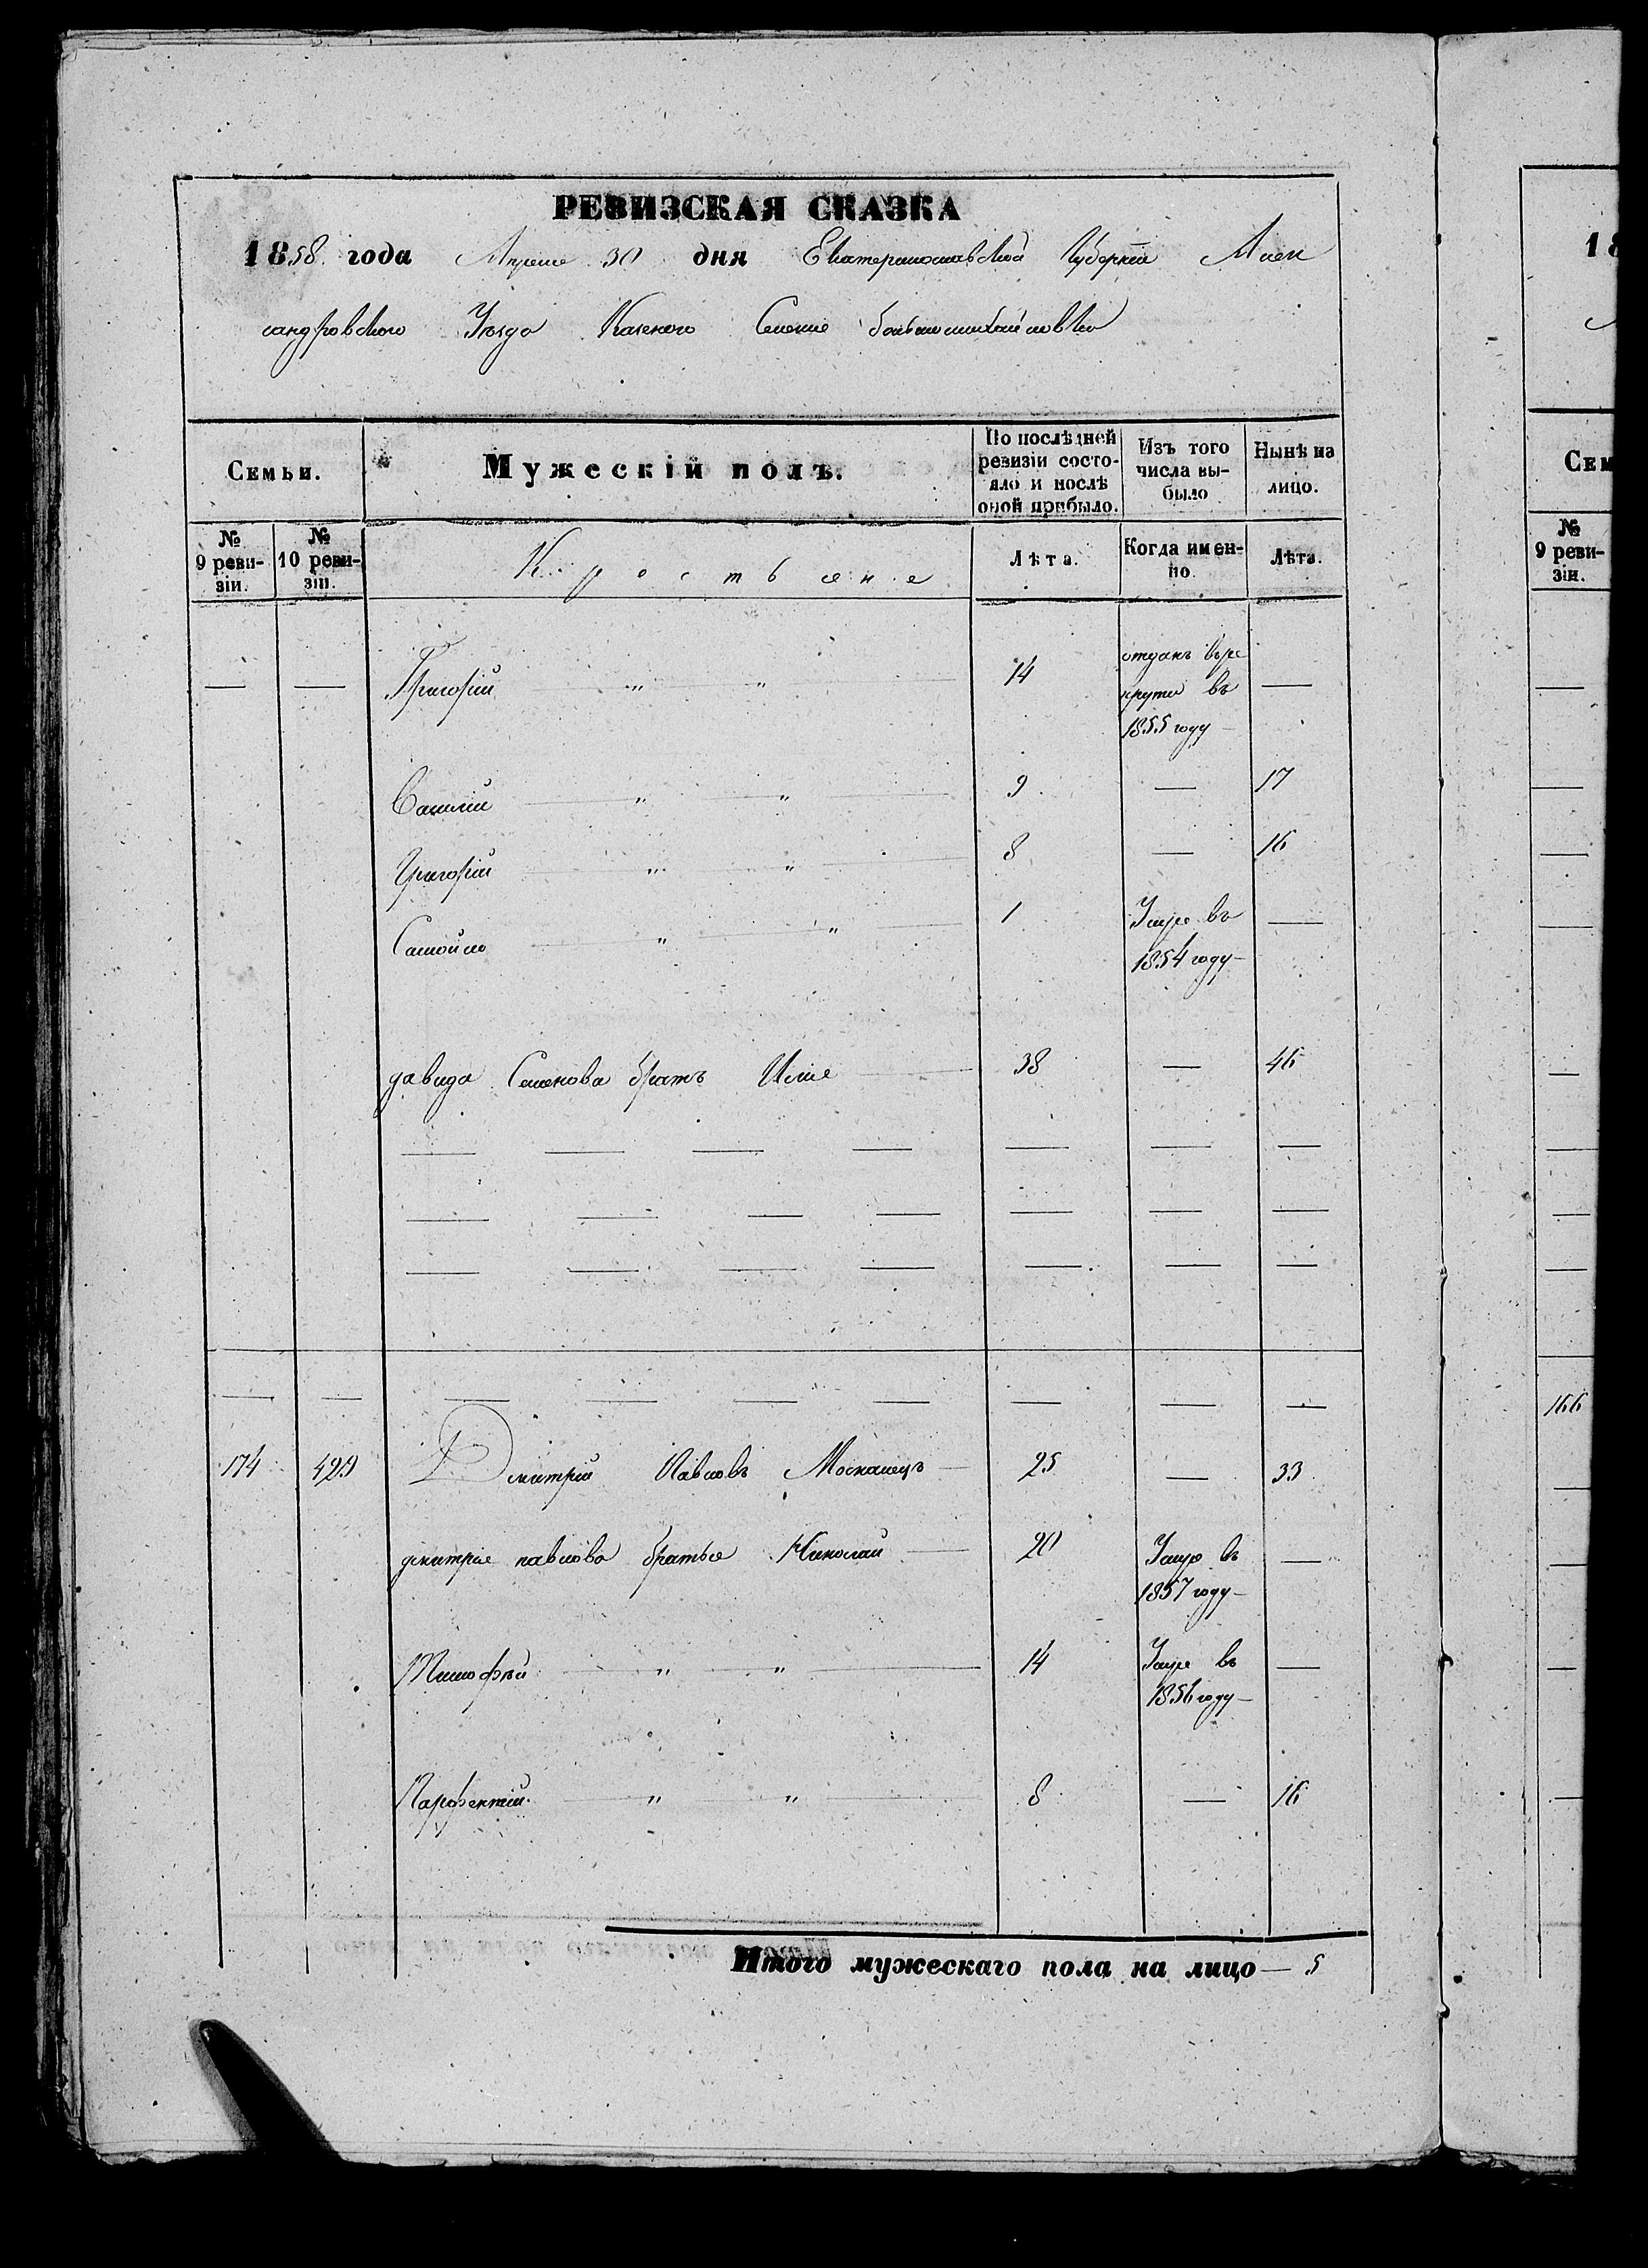 РЕВИЗСКАЯ СКАЗКА
1858 года Апреля 30 дня Екатеринославской Губерніи Алек
сандровского Уѣзда Казеного Селенія Большомихайловки
Семьи.
Мужескій полъ.
По послѣдней ревизіи состояло и послѣ оной прибыло.
Изъ того числа выбыло
Нынѣ на лицо.
№ 9 ревизіи.
№ 10 ревизіи.
Крестьяне
Лѣта.
Когда именно.
Лѣта.
— — Григорій — " — " — 14 отданъ въ рекруты въ 1855 году — —
Василій — " — " — 9 — 17
Григорій — " — " — 8 — 16
Самойло — " — " — 1 Умре въ 1854 году — —
давида Семенова братъ Илія — 38 — 46
— — — — — — —
— — — — — — —
— — — — — — —
— — — — — — — — —
174 429 Дмитрій Павловъ Москалецъ — 25 — 33
дмитрія павлова братья Николай — 20 Умре въ 1857 году — —
Тимофѣй — " — " — 14 Умре въ 1856 году — —
Парфентій — " — " — 8 — 16
Итого мужескаго пола на лицо — 5
18
Сем
№ 9 ревизіи.
166